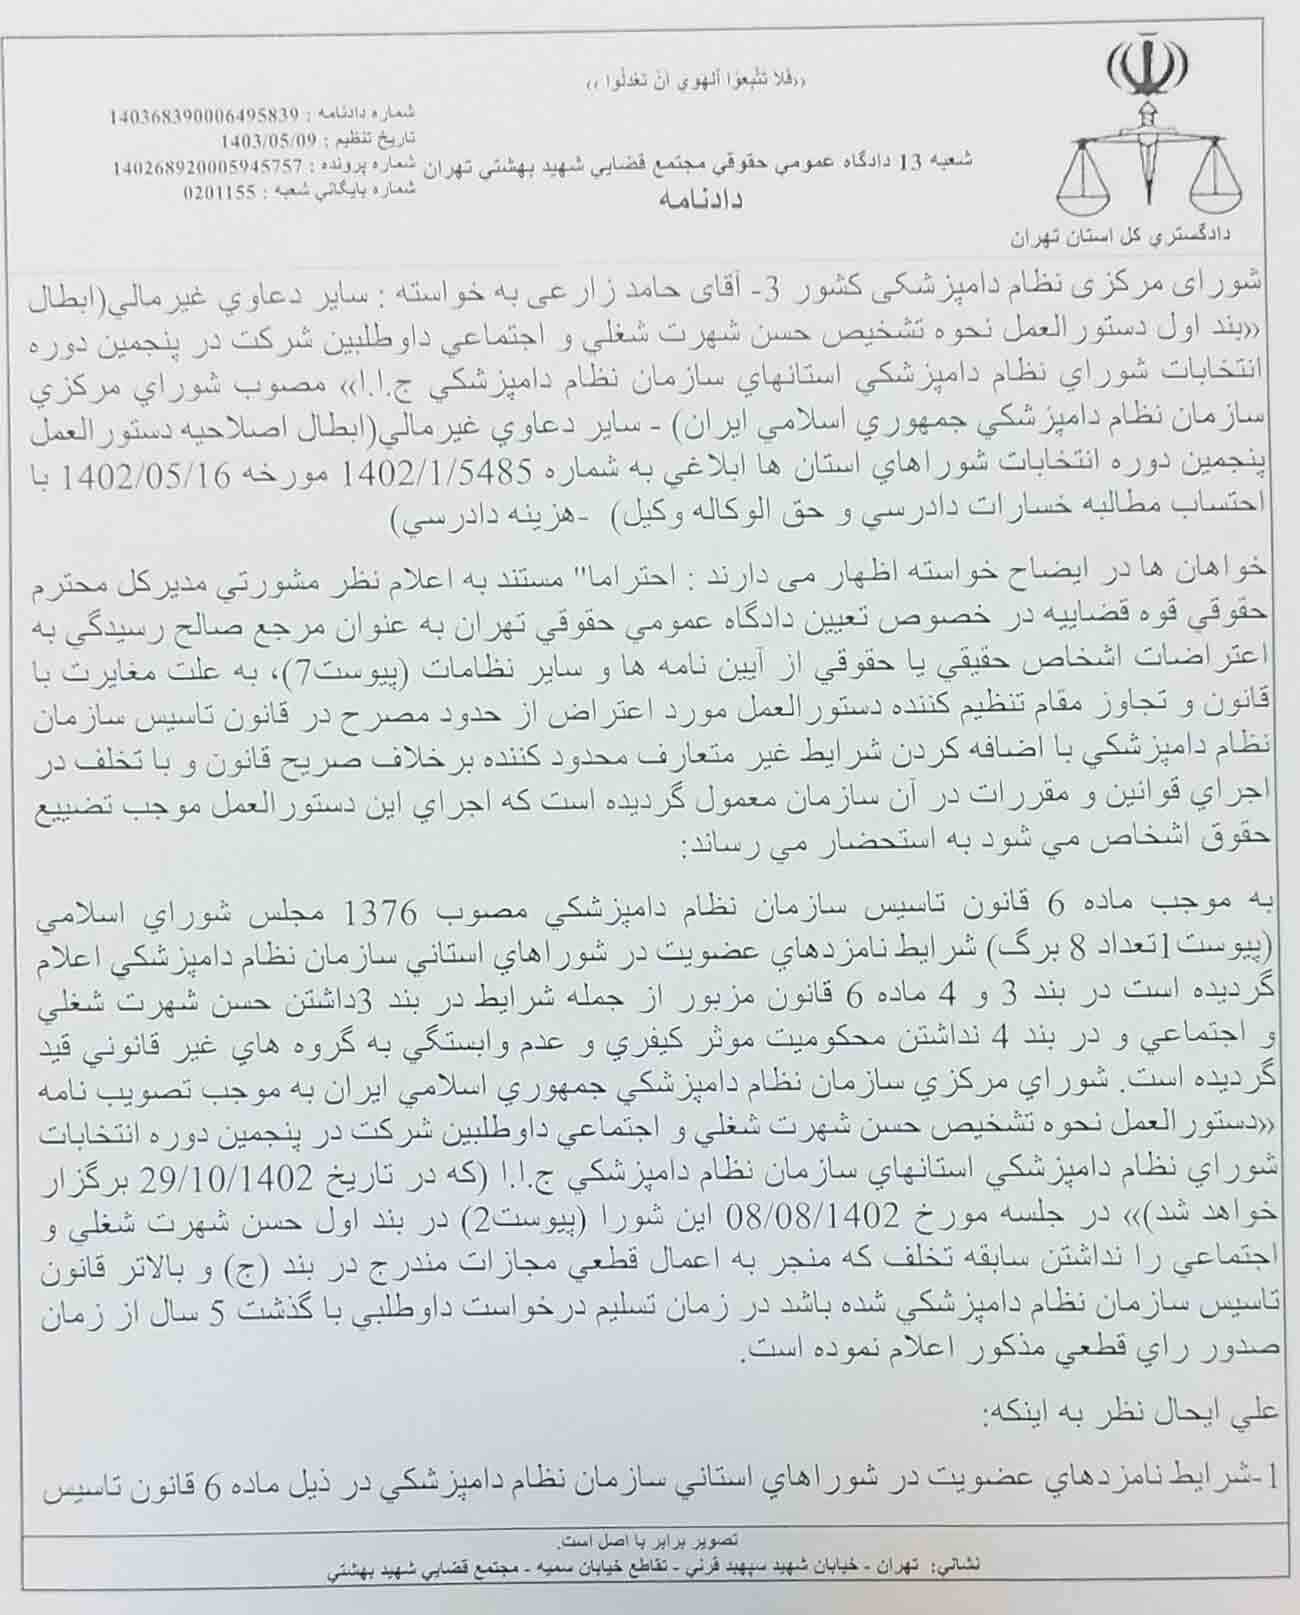 ((فَلا تَتَّبِعوُا اَلهوي اَن تَعدلُوا ))
شماره دادنامه : 140368390006495839
تاریخ تنظیم : 1403/05/09
شماره پرونده : 140268920005945757
شماره بایگاني شعبه : 0201155
شعبه 13 دادگاه عمومي حقوقي مجتمع قضایي شهید بهشتي تهران
دادنامه
دادگستري کل استان تهران
شورای مرکزی نظام دامپزشکی کشور 3- آقای حامد زارعی به خواسته : سایر دعاوي غیرمالي(ابطال
«بند اول دستورالعمل نحوه تشخیص حسن شهرت شغلي و اجتماعي داوطلبین شرکت در پنجمین دوره
انتخابات شوراي نظام دامپزشکي استانهاي سازمان نظام دامپزشکي ج.ا.ا» مصوب شوراي مرکزي
سازمان نظام دامپزشکي جمهوري اسلامي ایران) - سایر دعاوي غیرمالي(ابطال اصلاحیه دستورالعمل
پنجمین دوره انتخابات شوراهاي استان ها ابلاغي به شماره 1402/1/5485 مورخه 1402/05/16 با
احتساب مطالبه خسارات دادرسي و حق الوکاله وکیل) -هزینه دادرسي)
خواهان ها در ایضاح خواسته اظهار می دارند : احتراما" مستند به اعلام نظر مشورتي مدیرکل محترم
حقوقي قوه قضاییه در خصوص تعیین دادگاه عمومي حقوقي تهران به عنوان مرجع صالح رسیدگي به
اعتراضات اشخاص حقیقي یا حقوقي از آیین نامه ها و سایر نظامات (پیوست7)، به علت مغایرت با
قانون و تجاوز مقام تنظیم کننده دستورالعمل مورد اعتراض از حدود مصرح در قانون تاسیس سازمان
نظام دامپزشکي با اضافه کردن شرایط غیر متعارف محدود کننده برخلاف صریح قانون و با تخلف در
اجراي قوانین و مقررات در آن سازمان معمول گردیده است که اجراي این دستورالعمل موجب تضییع
حقوق اشخاص مي شود به استحضار مي رساند:
به موجب ماده 6 قانون تاسیس سازمان نظام دامپزشکي مصوب 1376 مجلس شوراي اسلامي
(پیوست1تعداد 8 برگ) شرایط نامزدهاي عضویت در شوراهاي استاني سازمان نظام دامپزشکي اعلام
گردیده است در بند 3 و 4 ماده 6 قانون مزبور از جمله شرایط در بند 3داشتن حسن شهرت شغلي
و اجتماعي و در بند 4 نداشتن محکومیت موثر کیفري و عدم وابستگي به گروه هاي غیر قانوني قید
گردیده است. شوراي مرکزي سازمان نظام دامپزشکي جمهوري اسلامي ایران به موجب تصویب نامه
«دستورالعمل نحوه تشخیص حسن شهرت شغلي و اجتماعي داوطلبین شرکت در پنجمین دوره انتخابات
شوراي نظام دامپزشکي استانهاي سازمان نظام دامپزشکي ج.ا.ا (که در تاریخ 29/10/1402 برگزار
خواهد شد)» در جلسه مورخ 08/08/1402 این شورا (پیوست2) در بند اول حسن شهرت شغلي و
اجتماعي را نداشتن سابقه تخلف که منجر به اعمال قطعي مجازات مندرج در بند (ج) و بالاتر قانون
تاسیس سازمان نظام دامپزشکي شده باشد در زمان تسلیم درخواست داوطلبي با گذشت 5 سال از زمان
صدور راي قطعي مذکور اعلام نموده است.
علي ایحال نظر به اینکه:
1-شرایط نامزدهاي عضویت در شوراهاي استاني سازمان نظام دامپزشکي در ذیل ماده 6 قانون تاسیس
تصویر برابر با اصل است.
نشاني: تهران - خیابان شهید سپهبد قرني - تقاطع خیابان سمیه - مجتمع قضایي شهید بهشتي